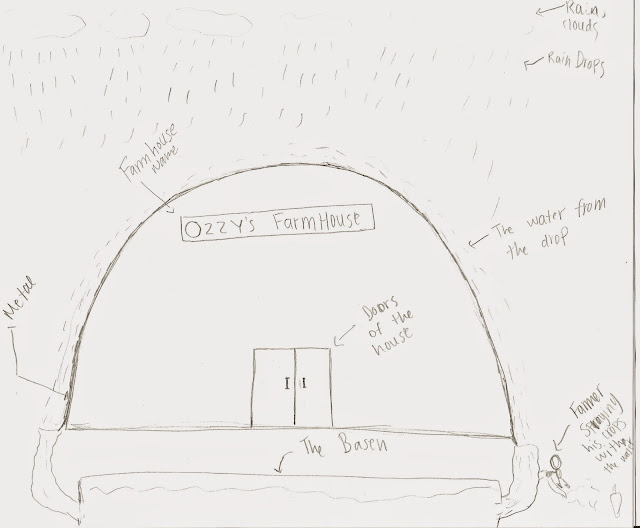 Rain,
clouds
Rain Drops
Farmhouse
name
Ozzy's FarmHouse
The water from
the drop
Metal
Doors
of the
house
The Basen
Farmer
Spraying
his crops
with
the water